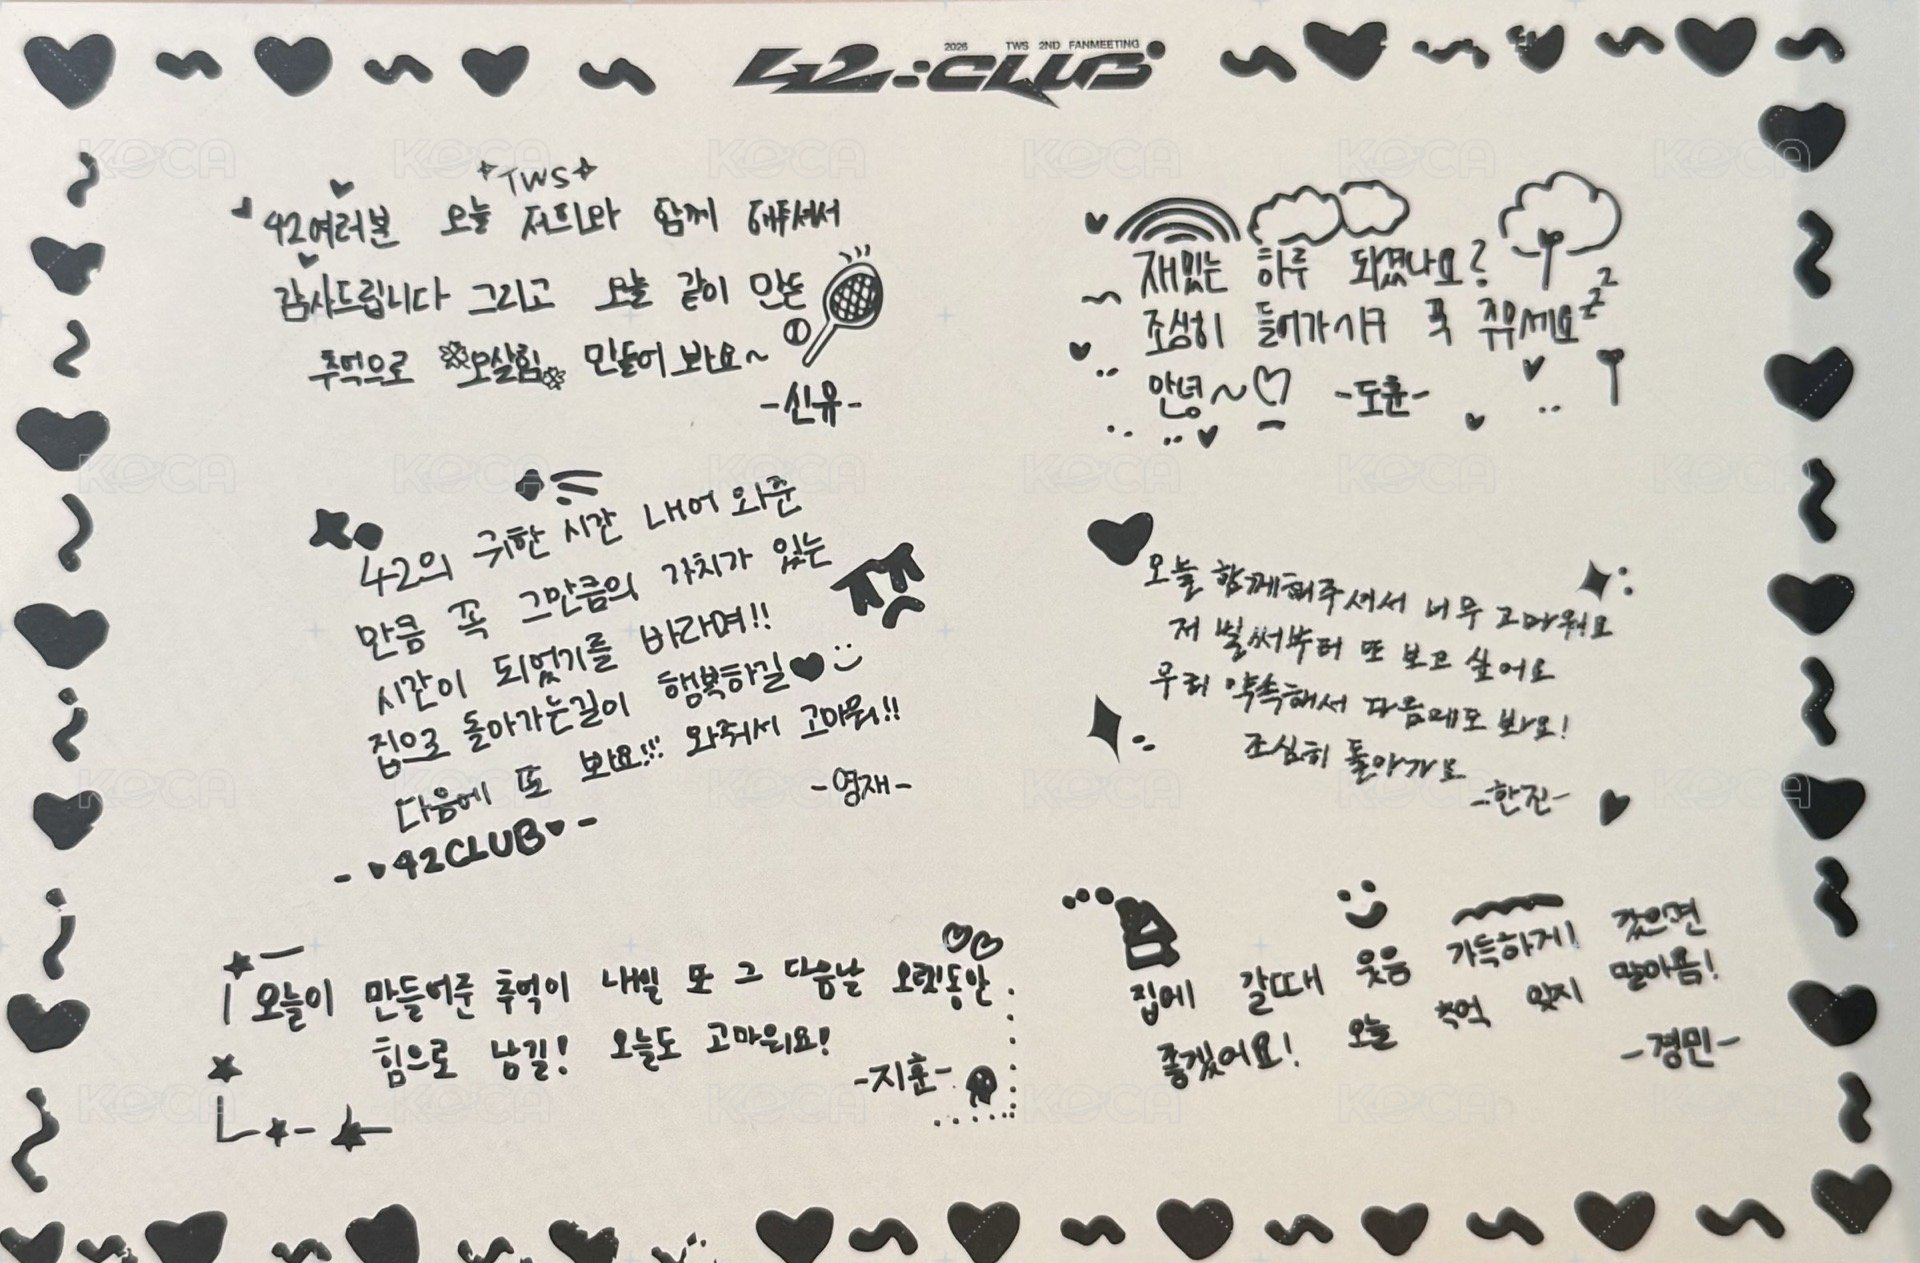 2026 TWS 2ND FANMEETING
42:CLUB
TWS
42여러분 오늘 저희와 함께 해주셔서
감사드립니다 그리고 오늘 같이 만든
추억으로 오살힘 만들어 봐요~
-신유-
재밌는 하루 되셨나요?
조심히 들어가시구 푹 주무세요 zzz
안녕~♡ -도훈-
42의 귀한 시간 내어 와준
만큼 꼭 그만큼의 가치가 있는
시간이 되었기를 바라며!!
집으로 돌아가는길이 행복하길♥
다음에 또 봐요!!! 와줘서 고마워!!
-영재-
- 42CLUB -
오늘 함께해주셔서 너무 고마워요
저 벌써부터 또 보고 싶어요
우리 약속해서 다음에도 봐요!
조심히 돌아가요
-한진-
오늘이 만들어준 추억이 내일 또 그 다음날 오랫동안
힘으로 남길! 오늘도 고마워요!
-지훈-
집에 갈때 웃음 가득하게 갔으면
좋겠어요! 오늘 추억 잊지 말아욤!
-경민-
KOCA